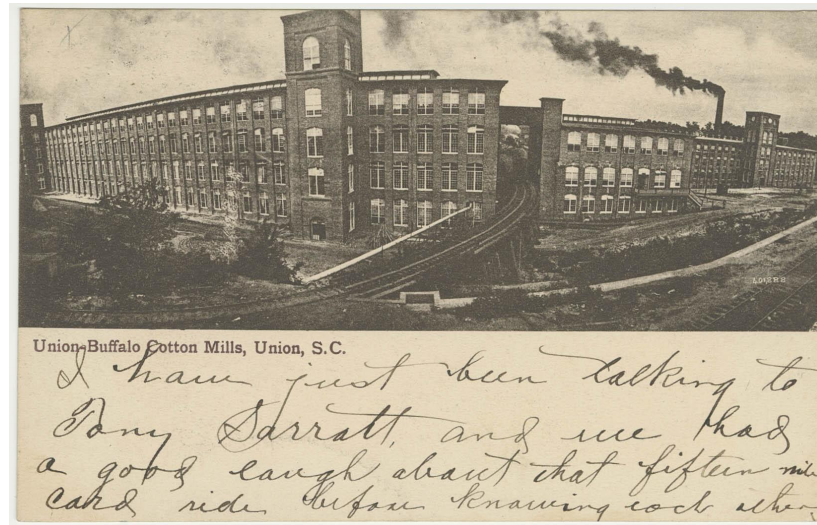 LOEHR
Union-Buffalo Cotton Mills, Union, S.C.
I have just been talking to
Tony Sarratt, and we had
a good laugh about that fifteen mile
card ride before knowing each other